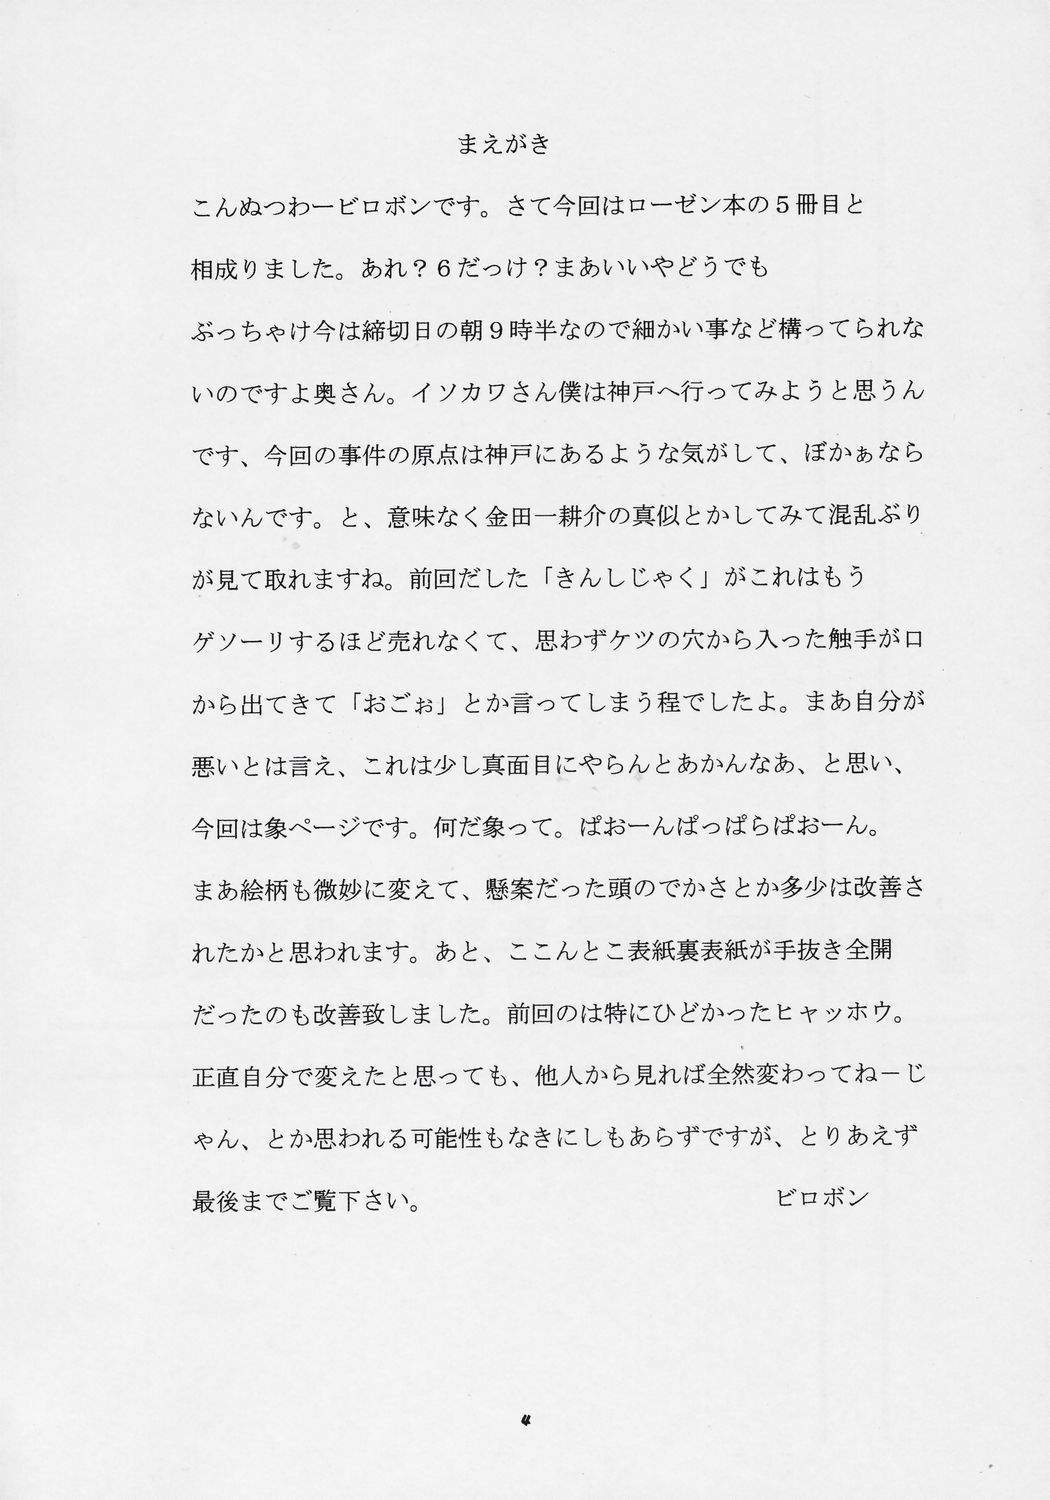 まえがき
こんぬつわービロボンです。さて今回はローゼン本の５冊目と
相成りました。あれ？６だっけ？まあいいやどうでも
ぶっちゃけ今は締切日の朝９時半なので細かい事など構ってられな
いのですよ奥さん。イソカワさん僕は神戸へ行ってみようと思うん
です、今回の事件の原点は神戸にあるような気がして、ぼかぁなら
ないんです。と、意味なく金田一耕介の真似とかしてみて混乱ぶり
が見て取れますね。前回だした「きんしじゃく」がこれはもう
ゲソーリするほど売れなくて、思わずケツの穴から入った触手が口
から出てきて「おごぉ」とか言ってしまう程でしたよ。まあ自分が
悪いとは言え、これは少し真面目にやらんとあかんなあ、と思い、
今回は象ページです。何だ象って。ぱおーんぱっぱらぱおーん。
まあ絵柄も微妙に変えて、懸案だった頭のでかさとか多少は改善さ
れたかと思われます。あと、ここんとこ表紙裏表紙が手抜き全開
だったのも改善致しました。前回のは特にひどかったヒャッホウ。
正直自分で変えたと思っても、他人から見れば全然変わってねーじ
ゃん、とか思われる可能性もなきにしもあらずですが、とりあえず
最後までご覧下さい。　　　　　　　　　　　　　　　ビロボン
4